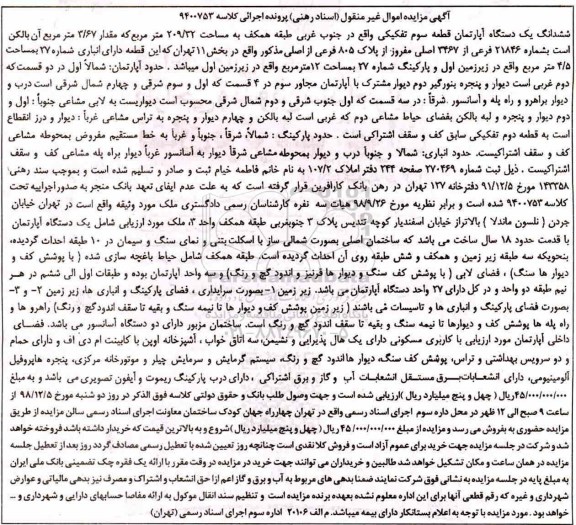 آگهی مزایده اموال غیر منقول (اسناد رهنی) پرونده اجرائی کلاسه ۹۴۰۰۷۵۳
ششدانگ یک دستگاه آپارتمان قطعه سوم تفکیکی واقع در جنوب غربی طبقه همکف به مساحت ۲۰۹/۳۲ متر مربع که مقدار ۳/۶۷ متر مربع آن بالکن
است بشماره ۲۱۸۴۶ فرعی از ۳۴۶۷ اصلی مفروز از پلاک ۸۰۵ فرعی از اصلی مذکور واقع در بخش ۱۱ تهران که این قطعه دارای انباری شماره ۲۷ بمساحت
۴/۵ متر مربع واقع در زیرزمین اول و پارکینگ شماره ۲۷ بمساحت ۱۲مترمربع واقع در زیرزمین اول میباشد . حدود آپارتمان: شمالاً اول در دو قسمت که
دوم غربی است دیوار و پنجره بنورگیر دوم دیوار مشترک با آپارتمان مجاور سوم در ۴ قسمت که اول و سوم شرقی و چهارم شمال شرقی است درب و
دیوار براهرو و راه پله و آسانسور .شرقاً : در سه قسمت که اول جنوب شرقی و دوم شمال شرقی محسوب است دیواریست به لابی مشاعی جنوباً : اول و
دوم دیوار و پنجره و لبه بالکن بفضای حیاط مشاعی دوم که غربی است لبه بالکن و چهارم دیوار و پنجره به تراس مشاعی غرباً : دیوار و درز انقطاع
است به قطعه دوم تفکیکی سابق کف و سقف اشتراکی است . حدود پارکینگ : شمالاً، شرقاً ، جنوباً و غرباً به خط مستقیم مفروض بمحوطه مشاعی
کف و سقف اشتراکیست. حدود انباری: شمالا و جنوباً درب و دیوار بمحوطه مشاعی شرقاً دیوار به آسانسور غرباً دیوار براه پله مشاعی کف و سقف
اشتراکیست . ذیل ثبت شماره ۲۷۰۴۶۹ صفحه ۲۴۴ دفتر املاک ۱۰۷/۲ به نام خانم فاطمه خیام ثبت و صادر و تسلیم شده است و بموجب سند رهنی
۱۴۳۳۵۸ مورخ ۹۱/۱۲/۵ دفترخانه ۱۳۷ تهران در رهن بانک کارآفرین قرار گرفته است که به علت عدم ایفای تعهد بانک منجر به صدور اجراییه تحت
کلاسه ۹۴۰۰۷۵۳ شده است و برابر نظریه مورخ ۹۸۹/۲۶ هیات سه نفره کارشناسان رسمی دادگستری ملک مورد وثیقه واقع است در تهران خیابان
جردن ( نلسون ماندلا ) بالاتراز خیابان اسفندیار کوچه تندیس پلاک ۳ جنوبغربی طبقه همکف واحد ۳، ملک مورد ارزیابی شامل یک دستگاه آپارتمان
با قدمت حدود ۱۸ سال ساخت می باشد که ساختمان اصلی بصورت شمالی ساز با اسکلت بتنی و نمای سنگ و سیمان در ۱۰ طبقه احداث گردیده،
بنحویکه سه طبقه زیر زمین و همکف و شش طبقه روی آن احداث گردیده است. طبقه همکف شامل حیاط باغچه سازی شده ( با پوشش کف و
دیوار ها سنگ) ، فضای لابی ( با پوشش کف سنگ و دیوار ها قرنیز و اندود گچ و رنگ) و سه واحد آپارتمان بوده و طبقات اول الی ششم در هر
نیم طبقه دو واحد و در کل دارای ۲۷ واحد دستگاه آپارتمان می باشد. زیر زمین ۱- بصورت سرایداری ، فضای پارکینگ و انباری ها، زیر زمین ۲- و ۳-
بصورت فضای پارکینگ و انباری ها و تاسیسات می باشند ( زیر زمین پوشش کف و دیوار ها تا نیمه سنگ و بقیه تا سقف اندودگچ و رنگ) راهرو ها و
راه پله ها پوشش کف و دیوارها تا نیمه سنگ و بقیه تا سقف اندود گچ و رنگ است. ساختمان مزبور دارای دو دستگاه آسانسور می باشد. فضای
داخلی آپارتمان مورد ارزیابی با کاربری مسکونی دارای یک هال پذیرایی و نشیمن، سه اتاق خواب ، آشپزخانه اوپن با کابینت ام دی اف و دارای حمام
و دو سرویس بهداشتی و تراس، پوشش کف سنگ، دیوار ها اندود گچ و رنگ، سیستم گرمایش و سرمایش چیلر و موتورخانه مرکزی، پنجره هاپروفیل
آلومینیومی، دارای انشعابات برق مستقل انشعابات آب و گاز و برق اشتراکی ، دارای درب پارکینگ ریموت و آیفون تصویری می باشد و به مبلغ
۴۵/۰۰۰/۰۰۰/۰۰۰ریال (چهل و پنج میلیارد ریال )ارزیابی شده است و جهت وصول طلب بانک و حقوق دولتی کلاسه فوق الذکر در روز دو شنبه مورخ ۹۸/۱۲/۵ از
ساعت ۹ صبح الی ۱۲ ظهر در محل اداره سوم اجرای اسناد رسمی واقع در تهران چهارراه جهان کودک ساختمان معاونت اجرای اسناد رسمی سالن مزایده از طریق
مزایده حضوری به فروش می رسد و مزایده از مبلغ ۴۵/۰۰۰/۰۰۰/۰۰۰ ریال (چهل و پنج میلیارد ریال )شروع و به بالاترین قیمت که خریدار داشته باشد فروخته خواهد
شد و شرکت در جلسه مزایده جهت خرید برای عموم آزاد است و فروش کلا نقدی است چنانچه روز تعیین شده با تعطیل رسمی مصادف گردد روز بعد از تعطیل جلسه
مزایده در همان ساعت و مکان تشکیل خواهد شد طالبین و خریداران می توانند جهت خرید در مزایده در وقت مقرر با ارائه یک فقره چک تضمینی بانک ملی ایران
به مبلغ پایه در جلسه مزایده به نشانی فوق شرکت نمایند ضمنا بدهی های مربوط به آب و برق و گاز اعم از حق انشعاب و اشتراک و مصرف نیز بدهی مالیاتی و عوارض
شهرداری و غیره که رقم قطعی آنها برای این اداره معلوم نشده بعهده برنده مزایده است و تنظیم سند انقال موکول به ارائه مفاصا حسابهای دارایی و شهرداری و ...
خواهد بود . مورد مزایده با توجه به اعلام بستانکار دارای بیمه میباشد. م الف ۲۰۱۰۶ اداره سوم اجرای اسناد رسمی (تهران)